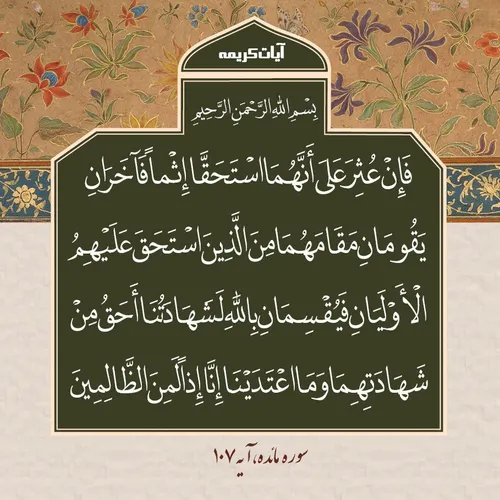 آیات کریمه
بِسْمِ اللهِ الرَّحْمَنِ الرَّحِيمِ
فَإِنْ عُثِرَ عَلَى أَنَّهُمَا اسْتَحَقَّا إِثْماً فَآخَرَانِ
يَقُومَانِ مَقَامَهُمَا مِنَ الَّذِينَ اسْتَحَقَ عَلَيْهِمُ
الْأَوْلَيَانِ فَيُقْسِمَانِ بِاللهِ لَشَهَادَتُنَا أَحَقُ مِنْ
شَهَادَتِهِمَا وَمَا اعْتَدَيْنَا إِنَّا إِذاً لَمِنَ الظَّالِمِينَ
سوره مائده، آیه ۱۰۷